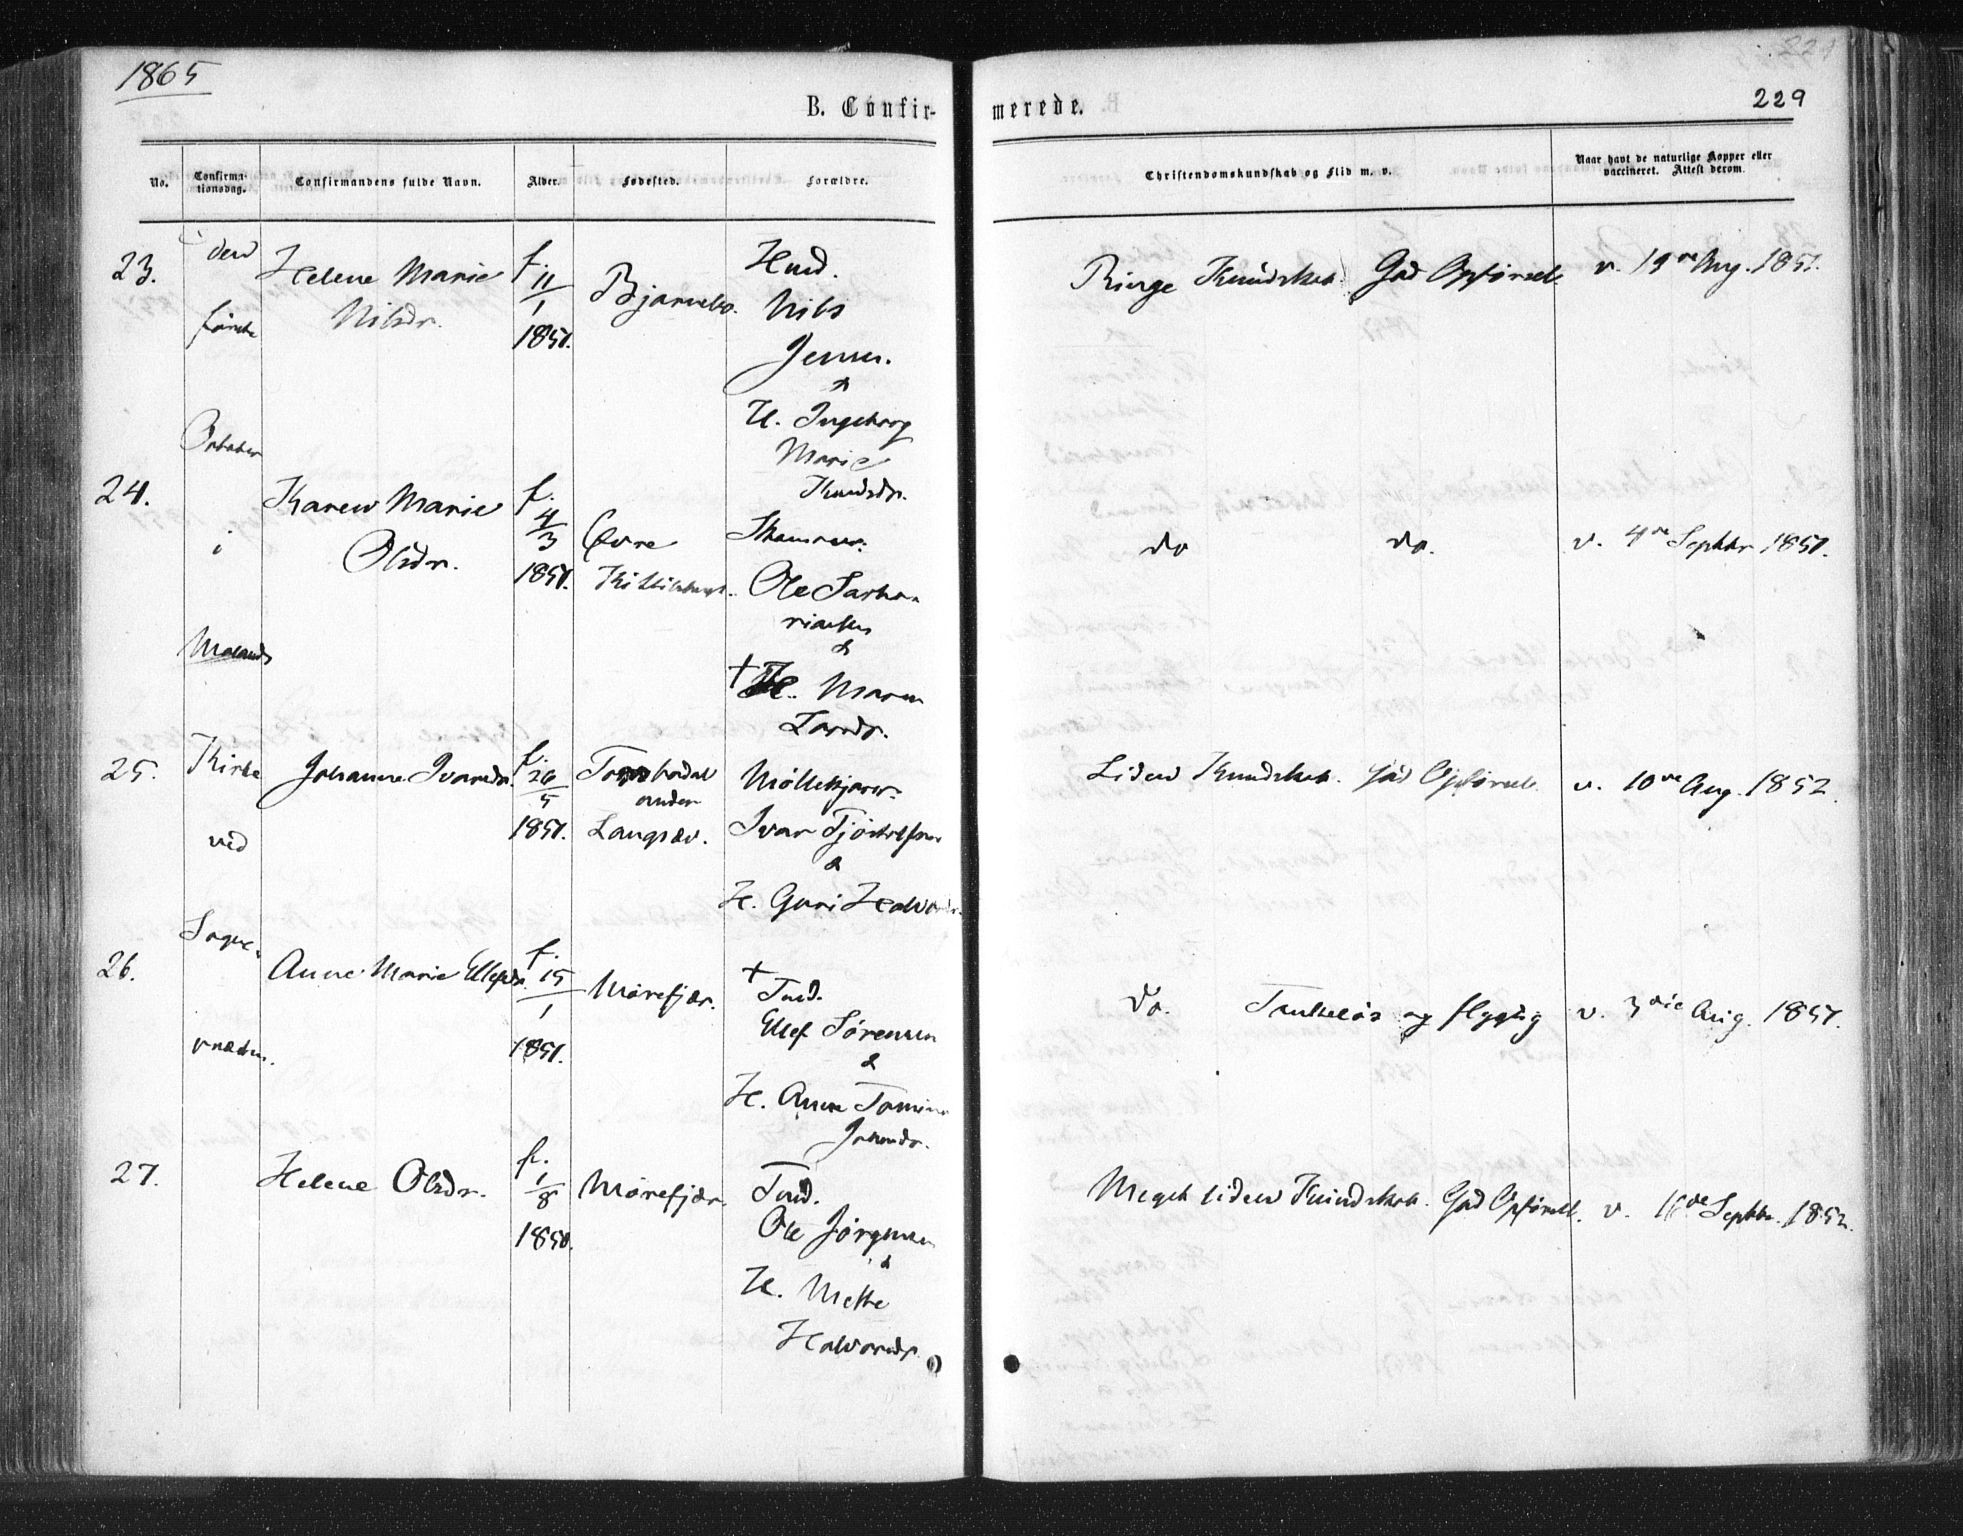 1865
229
B. Confir-
merede.
No.
Confirma-
tionsdag.
Confirmandens fulde Navn.
Alder.
Fødested.
Forældre.
Christendomskundskab og Flid m. v.
Naar havt de naturlige Kopper eller
vaccineret. Attest derom.
den
første
October
i
Molands
Kirke
ved
Sogne-
præsten.
23.
Helene Marie
Nilsdr.
f.
11/1
1851.
Hmd.
Nils
Jensen.
&
H. Ingeborg
Marie
Knudsdr.
Ringe Kundskab. God Opførsel
v. 19de Aug. 1851.
24.
Karen Marie
Olsdr.
f.
4/3
1851.
Øvre
Ole Sacha-
riasen
&
+ H. Maren
Larsdr.
do do.
v. 4de Septbr. 1851.
25.
Johanne Ivarsdr.
f.
26/5
1851.
under
Langsæv.
Ivar Tjöstolfsen
&
H. Guri Halvorsdr.
Liden Kundskab. God Opførsel.
v. 10de Aug. 1852.
26.
Anne Marie Ellefsdr.
f.
15/1
1851.
Mørefjær.
+
Ind.
Ellef Sørensen
&
H. Anne Tomine
do. Tankeløs og flygtig
v. 3die Aug. 1851.
27.
Helene Olsdr.
f.
1/8
1850.
Mørefjær.
Ind.
Ole Jörgensen
&
H. Mette
Halvorsdr.
Meget liden Kundskab. God Opførsel.
v. Septbr. 1852.